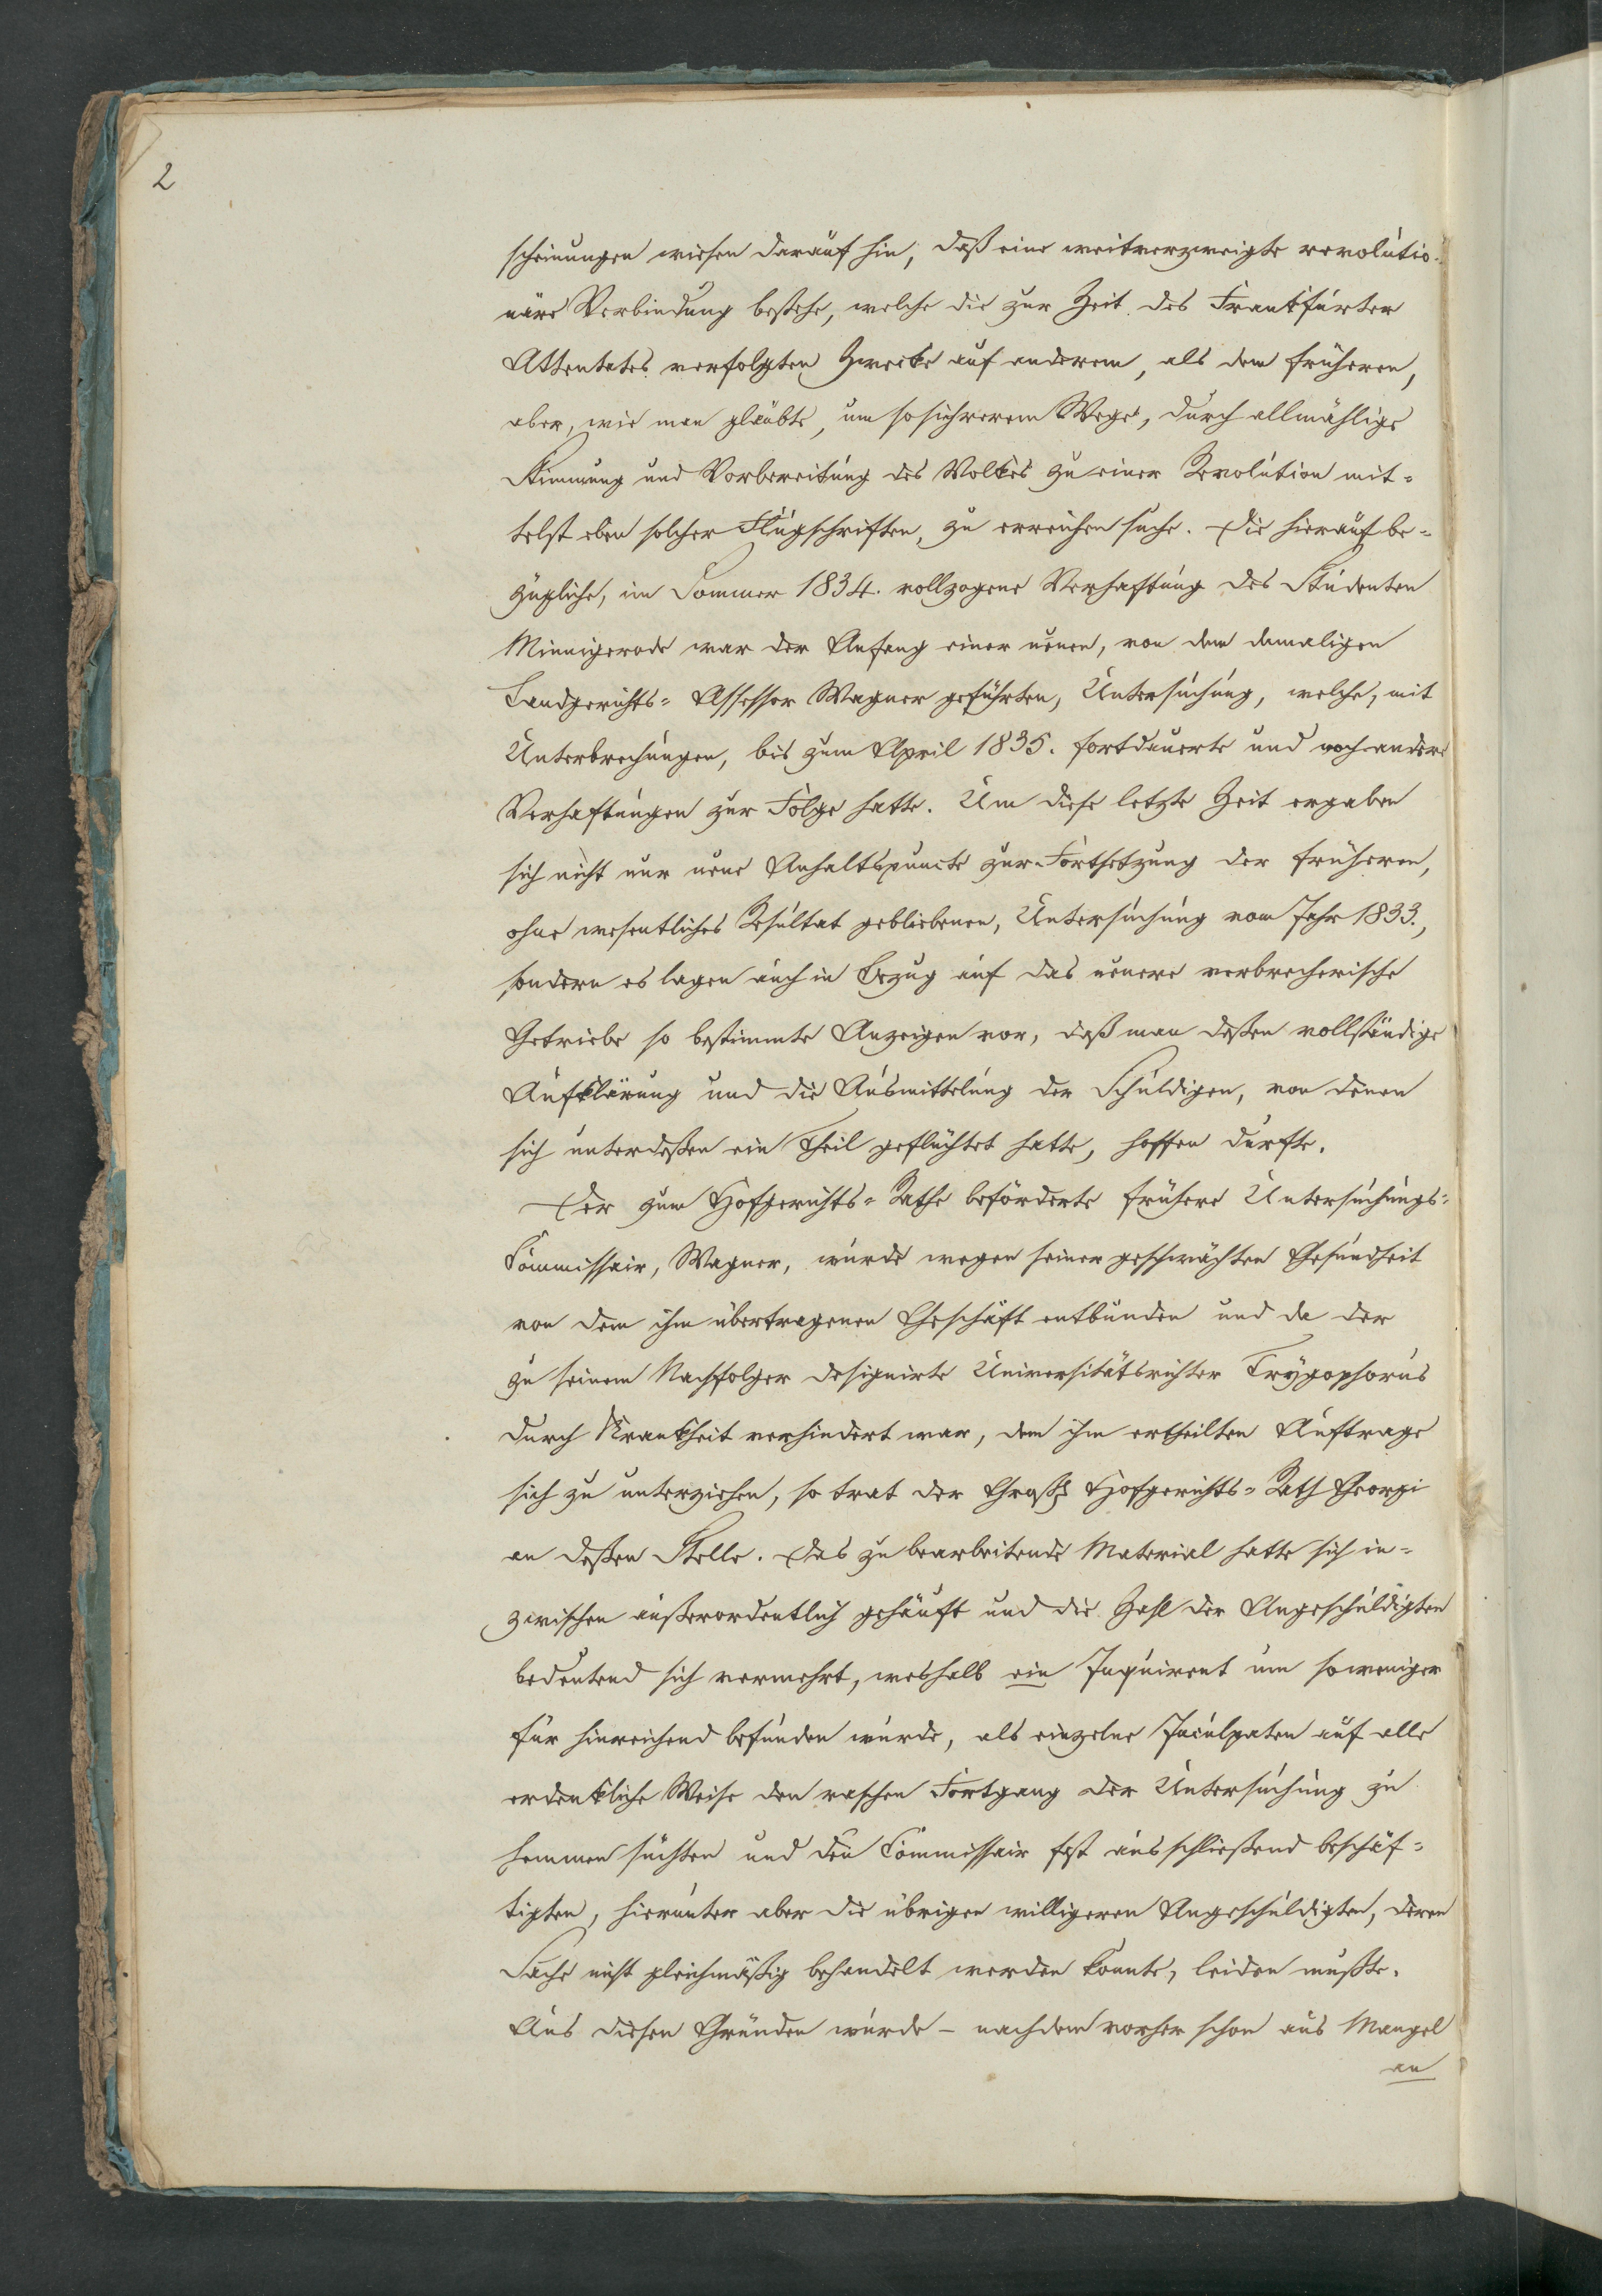 2
scheinungen wiesen darauf hin, daß eine weitverzweigte revolutio-
näre Verbindung bestehe, welche die zur Zeit des Frankfurter
Attentates verfolgten Zwecke auf anderem, als dem früheren,
aber, wie man glaubte, um so sichrerem Wege, durch allmählige
Stimmung und Vorbereitung des Volkes zu einer Revolution mit-
telst eben solcher Flugschriften, zu erreichen suche. Die hierauf be-
zügliche, im Sommer 1834. vollzogene Verhaftung des Studenten
Minnigerode war der Anfang einer neuen, von dem damaligen
Landgerichts-Assessor Wagner geführten, Untersuchung, welche, mit
Unterbrechungen, bis zum April 1835. fortdauerte und noch andere
Verhaftungen zur Folge hatte. Um diese letzte Zeit ergaben
sich nicht nur neue Anhaltspuncte zur Fortsetzung der früheren,
ohne wesentliches Resultat gebliebenen, Untersuchung vom Jahr 1833.,
sondern es lagen auch in Bezug auf das neuere verbrecherische
Getriebe so bestimmte Anzeigen vor, daß man deßen vollständige
Aufklärung und die Ausmittelung der Schuldigen, von denen
sich unterdeßen ein Theil geflüchtet hatte, hoffen durfte.
Der zum Hofgerichts-Rathe beförderte frühere Untersuchungs-
Commissair, Wagner, wurde wegen seiner geschwächten Gesundheit
von dem ihm übertragenen Geschäft entbunden und da der
zu seinem Nachfolger designirte Universitätsrichter Trygophorus
durch Krankheit verhindert war, dem ihm ertheilten Auftrage
sich zu unterziehen, so trat der Großh. Hofgerichts-Rath Georgi
an deßen Stelle. Das zu bearbeitende Material hatte sich in-
zwischen außerordentlich gehäuft und die Zahl der Angeschuldigten
bedeutend sich vermehrt, weshalb ein Inquirent um so weniger
für hinreichend befunden wurde, als einzelne Inculpaten auf alle
erdenkliche Weise den raschen Fortgang der Untersuchung zu
hemmen suchten und den Commissair fast ausschließend beschäf-
tigten, hierunter aber die übrigen willigeren Angeschuldigten, deren
Sache nicht gleichmäßig behandelt werden konnte, leiden mußte.
Aus diesen Gründen wurde - nachdem vorher schon aus Mangel
an